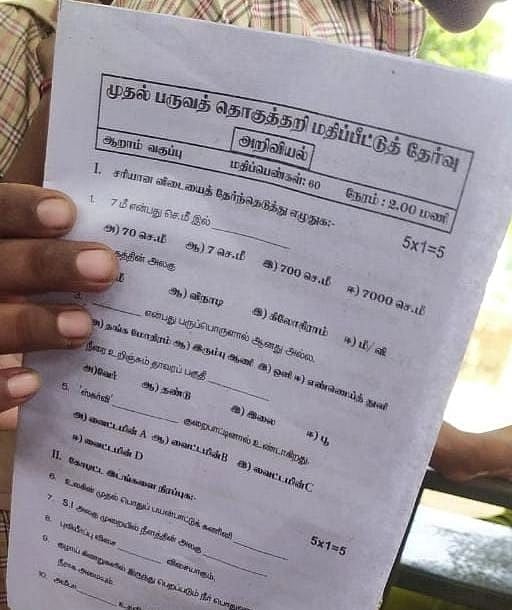 முதல் பருவத் தொகுத்தறி மதிப்பீட்டுத் தேர்வு
அறிவியல்
ஆறாம் வகுப்பு மதிப்பெண்கள்: 60 நேரம் : 2.00 மணி
I. சரியான விடையைத் தேர்ந்தெடுத்து எழுதுக:- 5x1=5
1. 7 மீ என்பது செ.மீ இல் ____________
அ) 70 செ.மீ ஆ) 7 செ.மீ இ) 700 செ.மீ ஈ) 7000 செ.மீ
அலகு
ஆ) விநாடி இ) கிலோகிராம் ஈ) மீ/வி
3. ________ என்பது பருப்பொருளால் ஆனது அல்ல.
அ) தங்க மோதிரம் ஆ) இரும்பு ஆணி இ) ஒளி ஈ) எண்ணெய்த் துளி
நீரை உறிஞ்சும் தாவரப் பகுதி ____________
அ) வேர் ஆ) தண்டு இ) இலை ஈ) பூ
5. 'ஸ்கர்வி' ____________ குறைபாட்டினால் உண்டாகிறது.
அ) வைட்டமின் A ஆ) வைட்டமின் B இ) வைட்டமின் C
ஈ) வைட்டமின் D
II. கோடிட்ட இடங்களை நிரப்புக:- 5x1=5
6. உலகின் முதல் பொதுப் பயன்பாட்டுக் கணினி ____________
7. S.I அலகு முறையில் நீளத்தின் அலகு ____________
8. புவிஈர்ப்பு விசை ____________ விசையாகும்.
9. குழாய் கிணறுகளில் இருந்து பெறப்படும் நீர் பொதுவாக
நீராக அமையும்.
10.